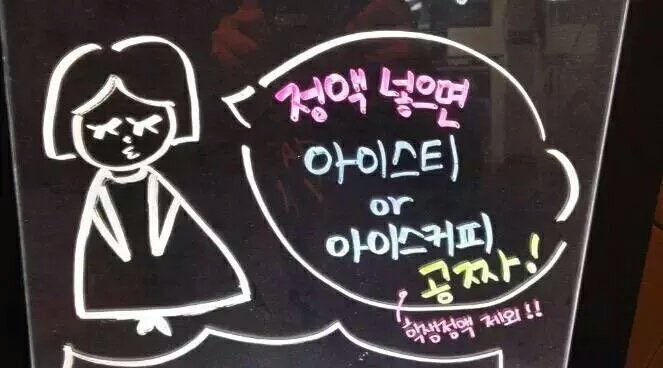 정액 넣으면
아이스티
or
아이스커피
공짜!
학생정액 제외!!